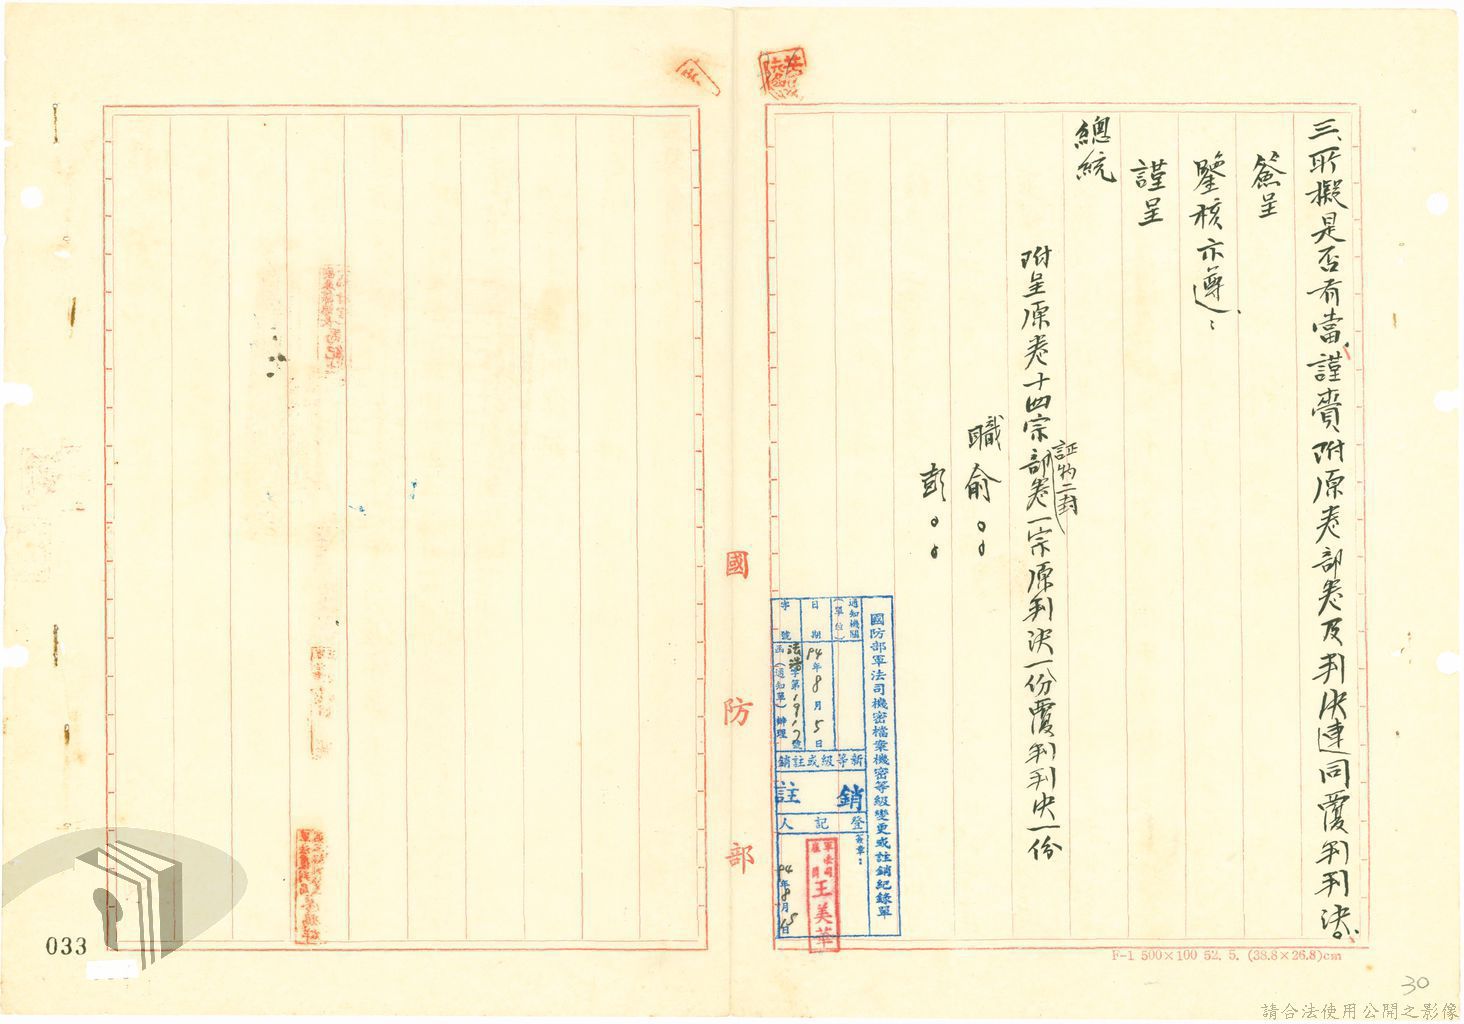 三、所擬是否有當謹賫附原卷部卷及判決連同覆判判決
簽呈
鑒核示遵:
謹呈
總統
附呈原卷十四宗部卷一宗原判決一份覆判判決一份
証物二封
職俞。。
彭。。
國防部軍法司機密檔案機密等級變更或註銷紀錄單
通知機關
(單位)
日期
94年8月5日
字號
法浩字第1917號
函(通知單)辦理
新等級或註銷
註銷
登記人
簽章:
軍法司
王美華
94年8月15日
國防部
F-1 500×100 52. 5. (38.8×26.8)cm
30
033
請合法使用公開之影像